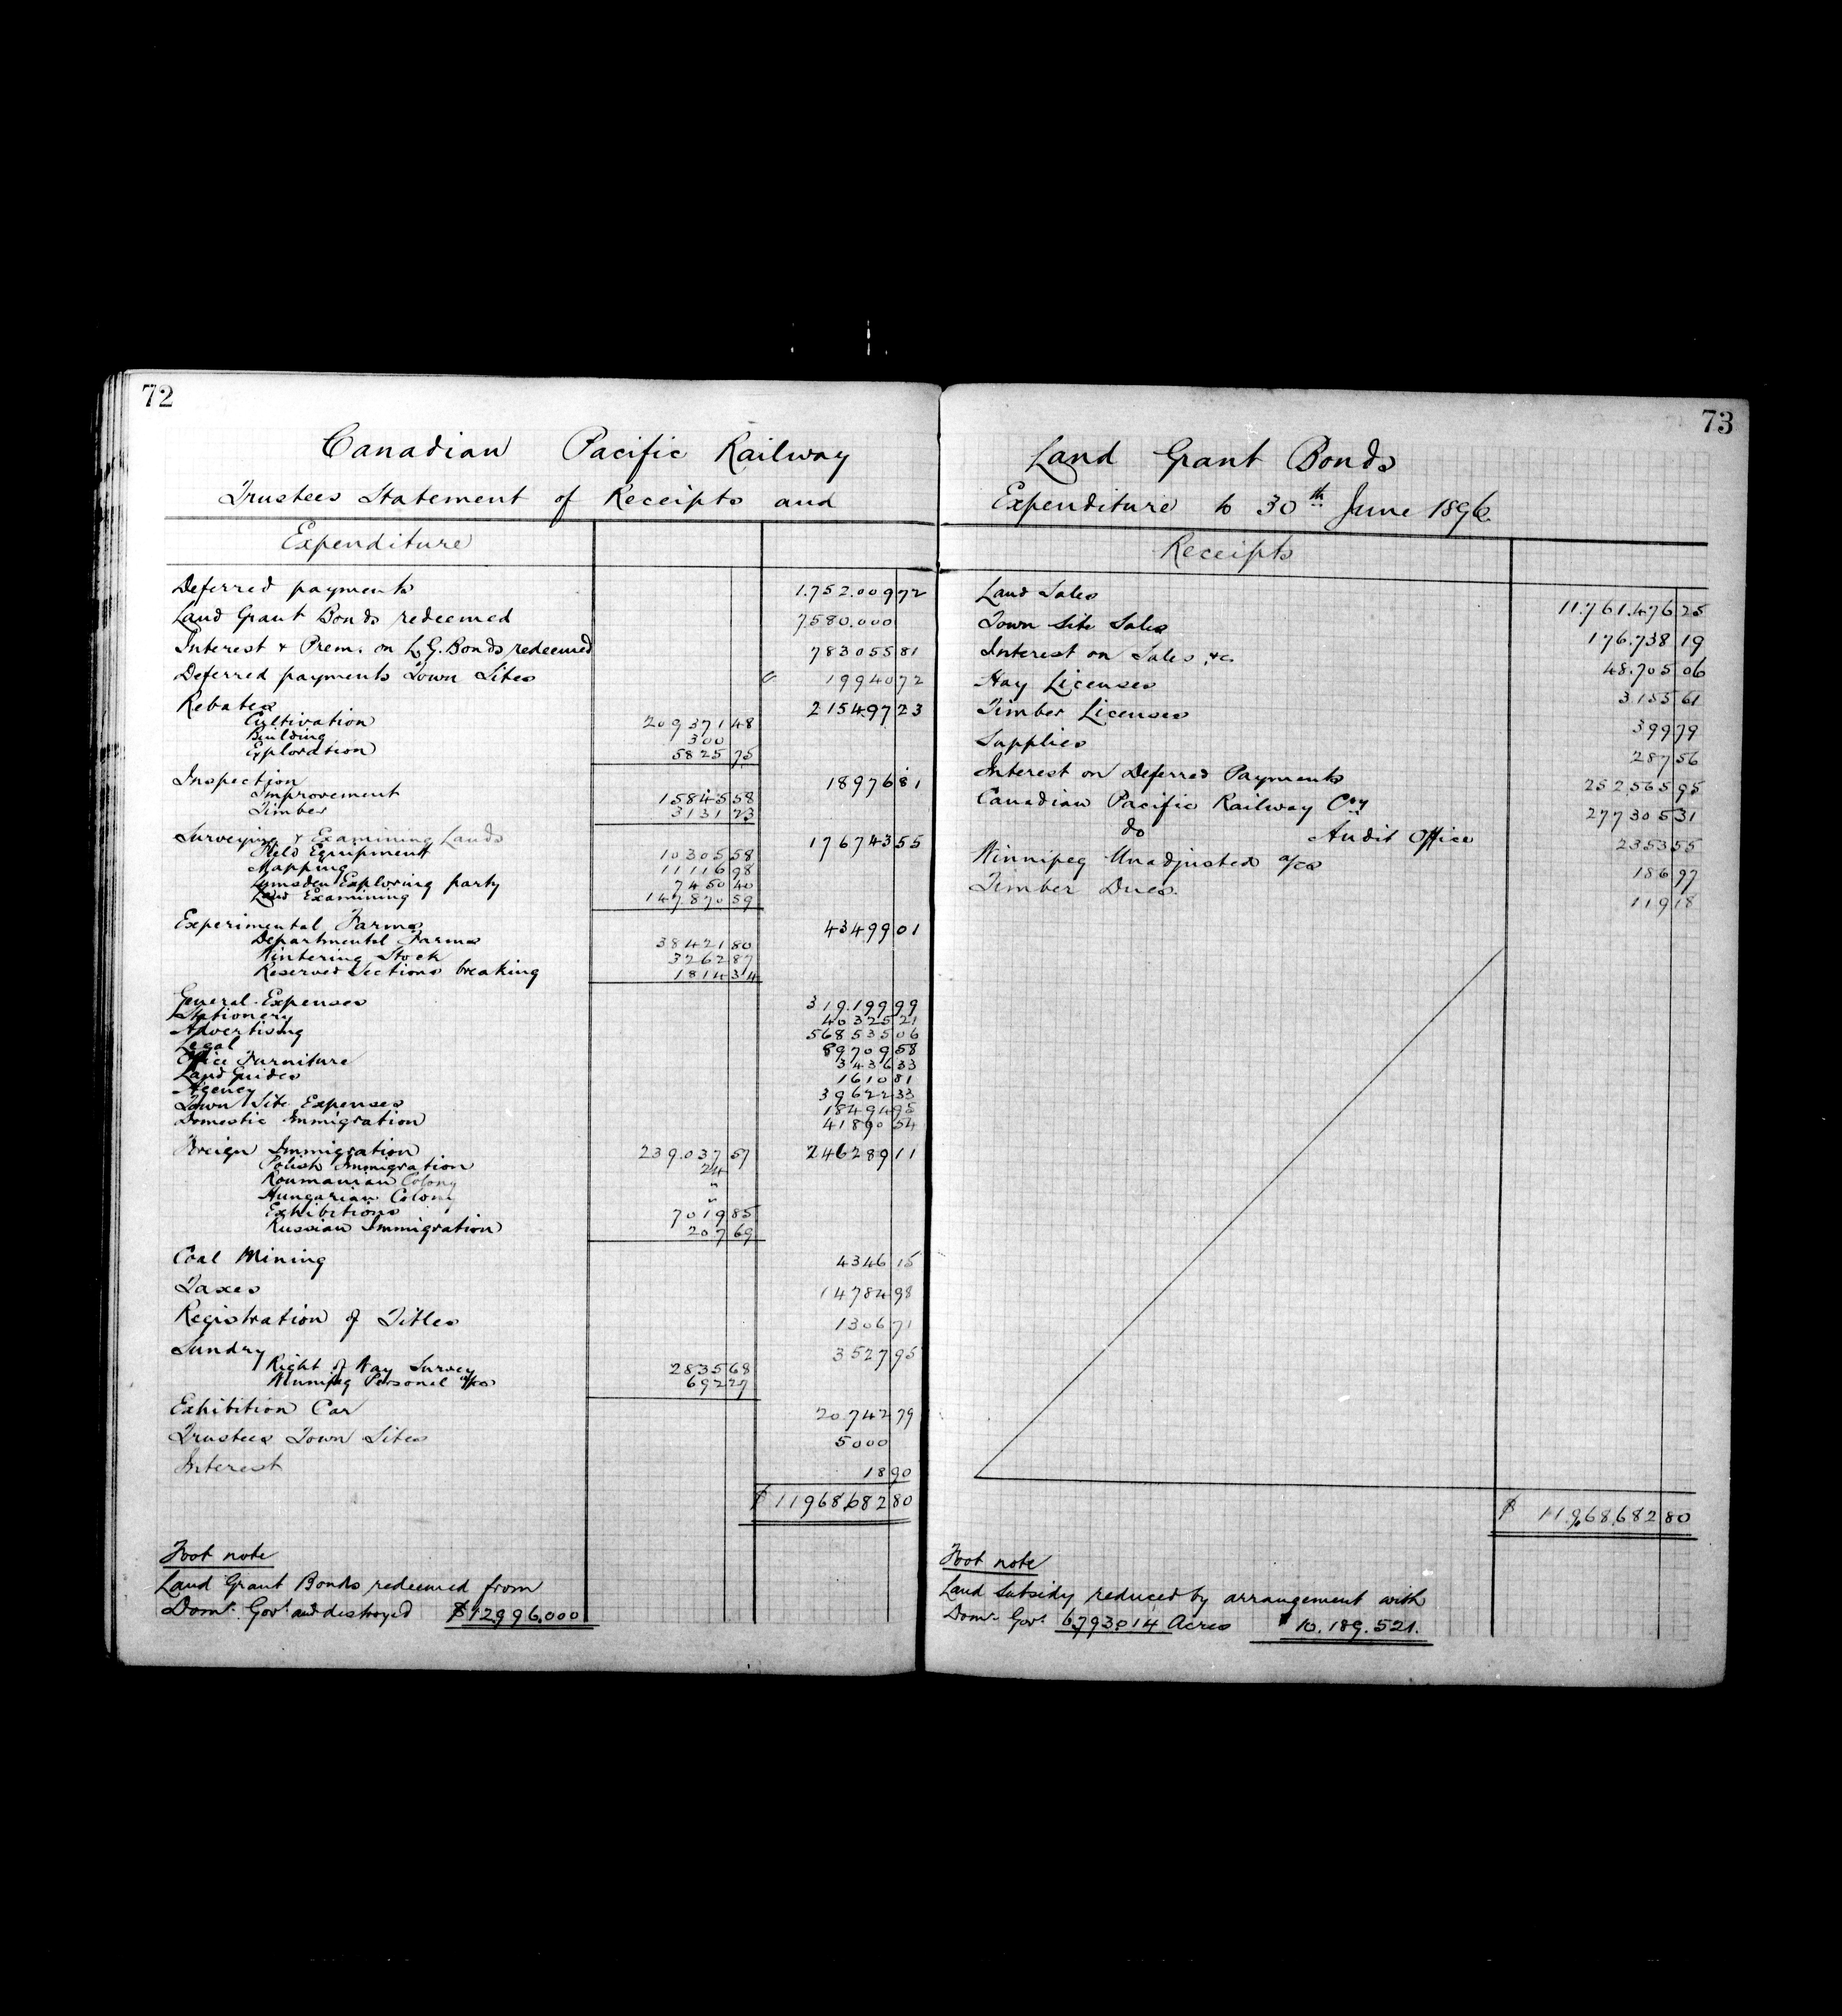 72
Canadian Pacific Railway
Trustees Statement of Receipts and
Expenditure
Deferred payments 1.752.009 72
Land Grant Bonds redeemed 7580.000
Interest & Prem. on L.G. Bonds redeemed 783055 81
Deferred payments Town Sites " 19940 72
Rebates 215497 23
Cultivation 209371 48
Building 300
Exploration 5825 75
Inspection 18976 81
Improvement 15845 58
Timber 3131 23
Surveying & Examining Lands 176743 55
Field Equipment 10305 58
Mapping 11116 98
Lumsden Exploring party 7450 40
Land Examining 147.870 59
Experimental Farms 43499 01
Departmental Farms 38421 80
Wintering Stock 3262 87
Reserved Sections breaking 1814 34
General Expenses 319.199 99
Stationery 40325 21
Advertising 568535 06
Legal 89709 58
Office Furniture 3436 33
Land Guides 1610 81
Agency 39622 33
Town Site Expenses 18494 95
Domestic Immigration 41890 54
Foreign Immigration 239.037 57 246289 11
Polish Immigration 24
Roumanian Colony "
Hungarian Colony "
Exhibitions 7019 85
Russian Immigration 207 69
Coal Mining 4346 15
Taxes 14784 98
Registration of Titles 1306 71
Sundry 3527 95
Right of Way Survey 2835 68
Winnipeg Personal a/cs 692 27
Exhibition Car 20.742 79
Trustees Town Sites 5000
Interest 18 90
$ 11968682 80
Foot note
Land Grant Bonds redeemed from
Domn. Govt. and destroyed $12996.000
73
Land Grant Bonds
Expenditure to 30th June 1896
Receipts
Land Sales 11.761.476 25
Town Site Sales 176.738 19
Interest on Sales &c 48.705 06
Hay Licenses 3135 61
Timber Licenses 399 79
Supplies 287 56
Interest on Deferred Payments 252565 95
Canadian Pacific Railway Coy 277305 31
do Audit Office 2353 55
Winnipeg Unadjusted a/cs 186 97
Timber Dues. 119 18
$ 11.968.682 80
Foot note
Land Subsidy reduced by arrangement with
Domn Govt. 6793014 Acres $ 10.189.521.